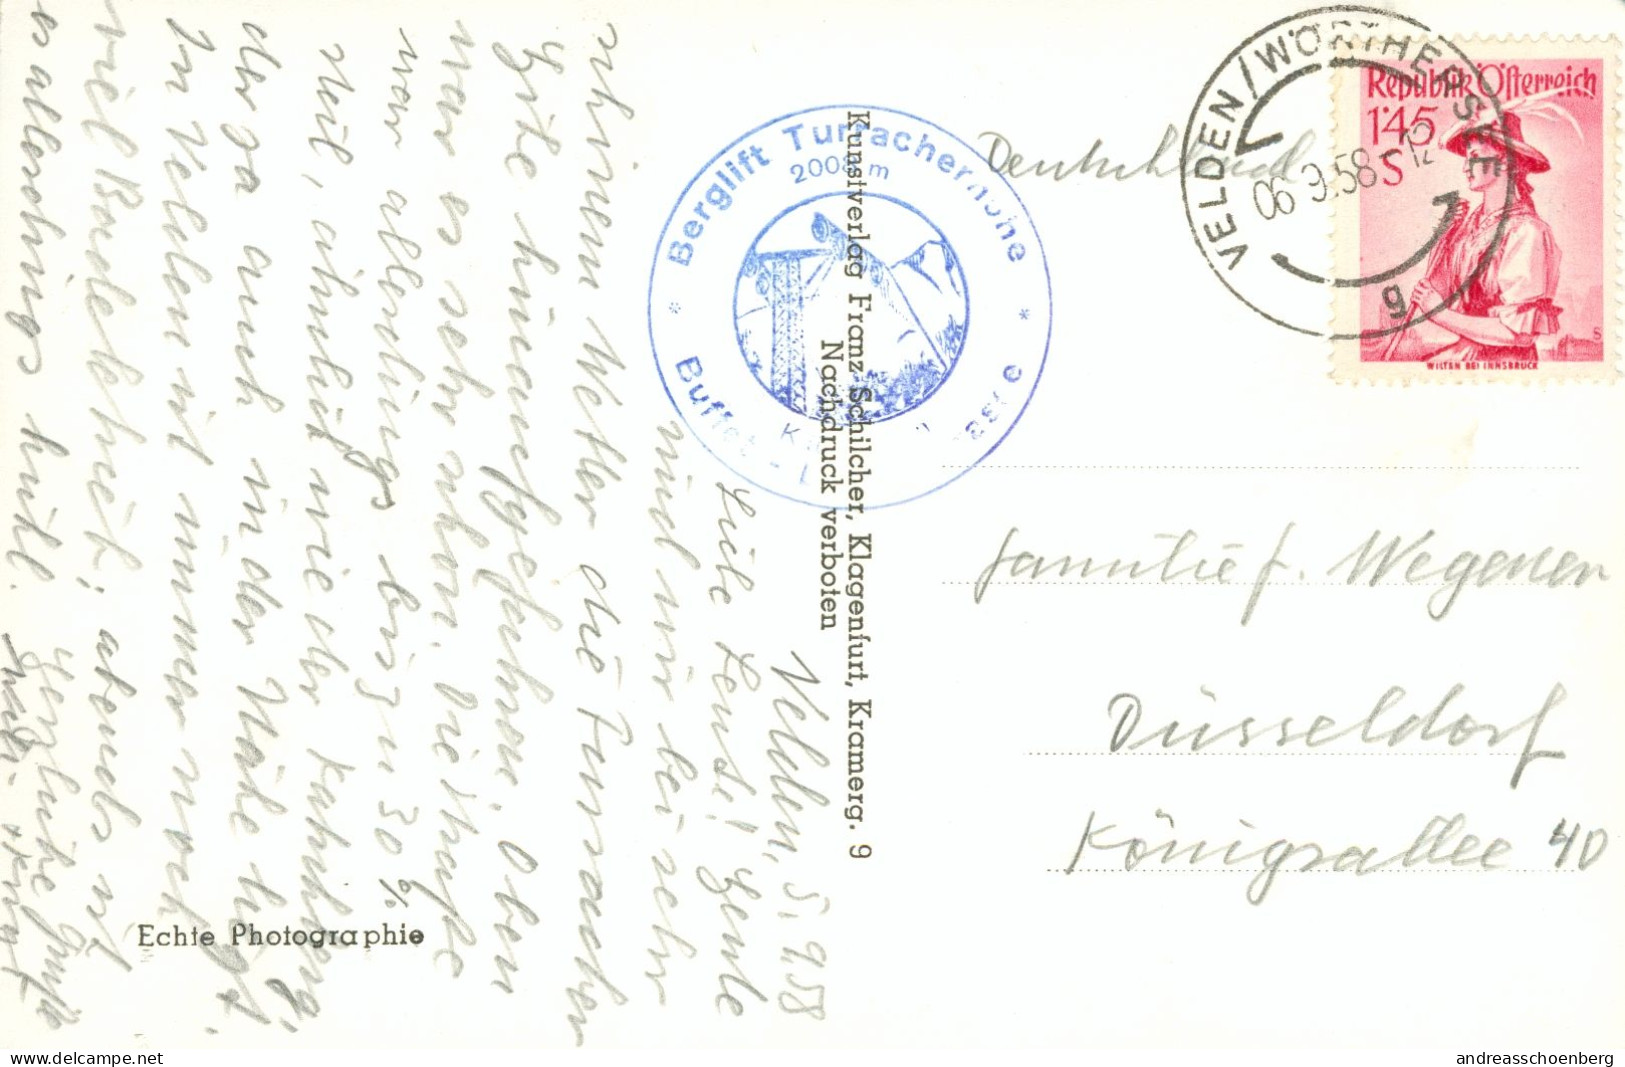 Velden, 5.9.58
Liebe Leute! Heute
sind wir bei sehr
schönem Wetter die Turracher
Höhe hinaufgefahren. Oben
war es sehr schön. Die Straße
war allerdings bis zu 30 %
steil, ähnlich wie der Katschberg,
der ja auch in der Nähe liegt.
In Velden ist immer noch
viel Badebetrieb, abends ist
es allerdings kühl.
Herzliche Grüße
Kunstverlag Franz Schilcher, Klagenfurt, Kramerg. 9
Nachdruck verboten
Echte Photographie
* Berglift Turracherhöhe *
2008 m
Buffet
VELDEN/WÖRTHERSEE
06.9.58 12
g
Republik Österreich
1.45
S
WILTEN BEI INNSBRUCK
S
Deutschland
Familie F. Wegener
Düsseldorf
Königsallee 40
www.delcampe.net
andreasschoenberg